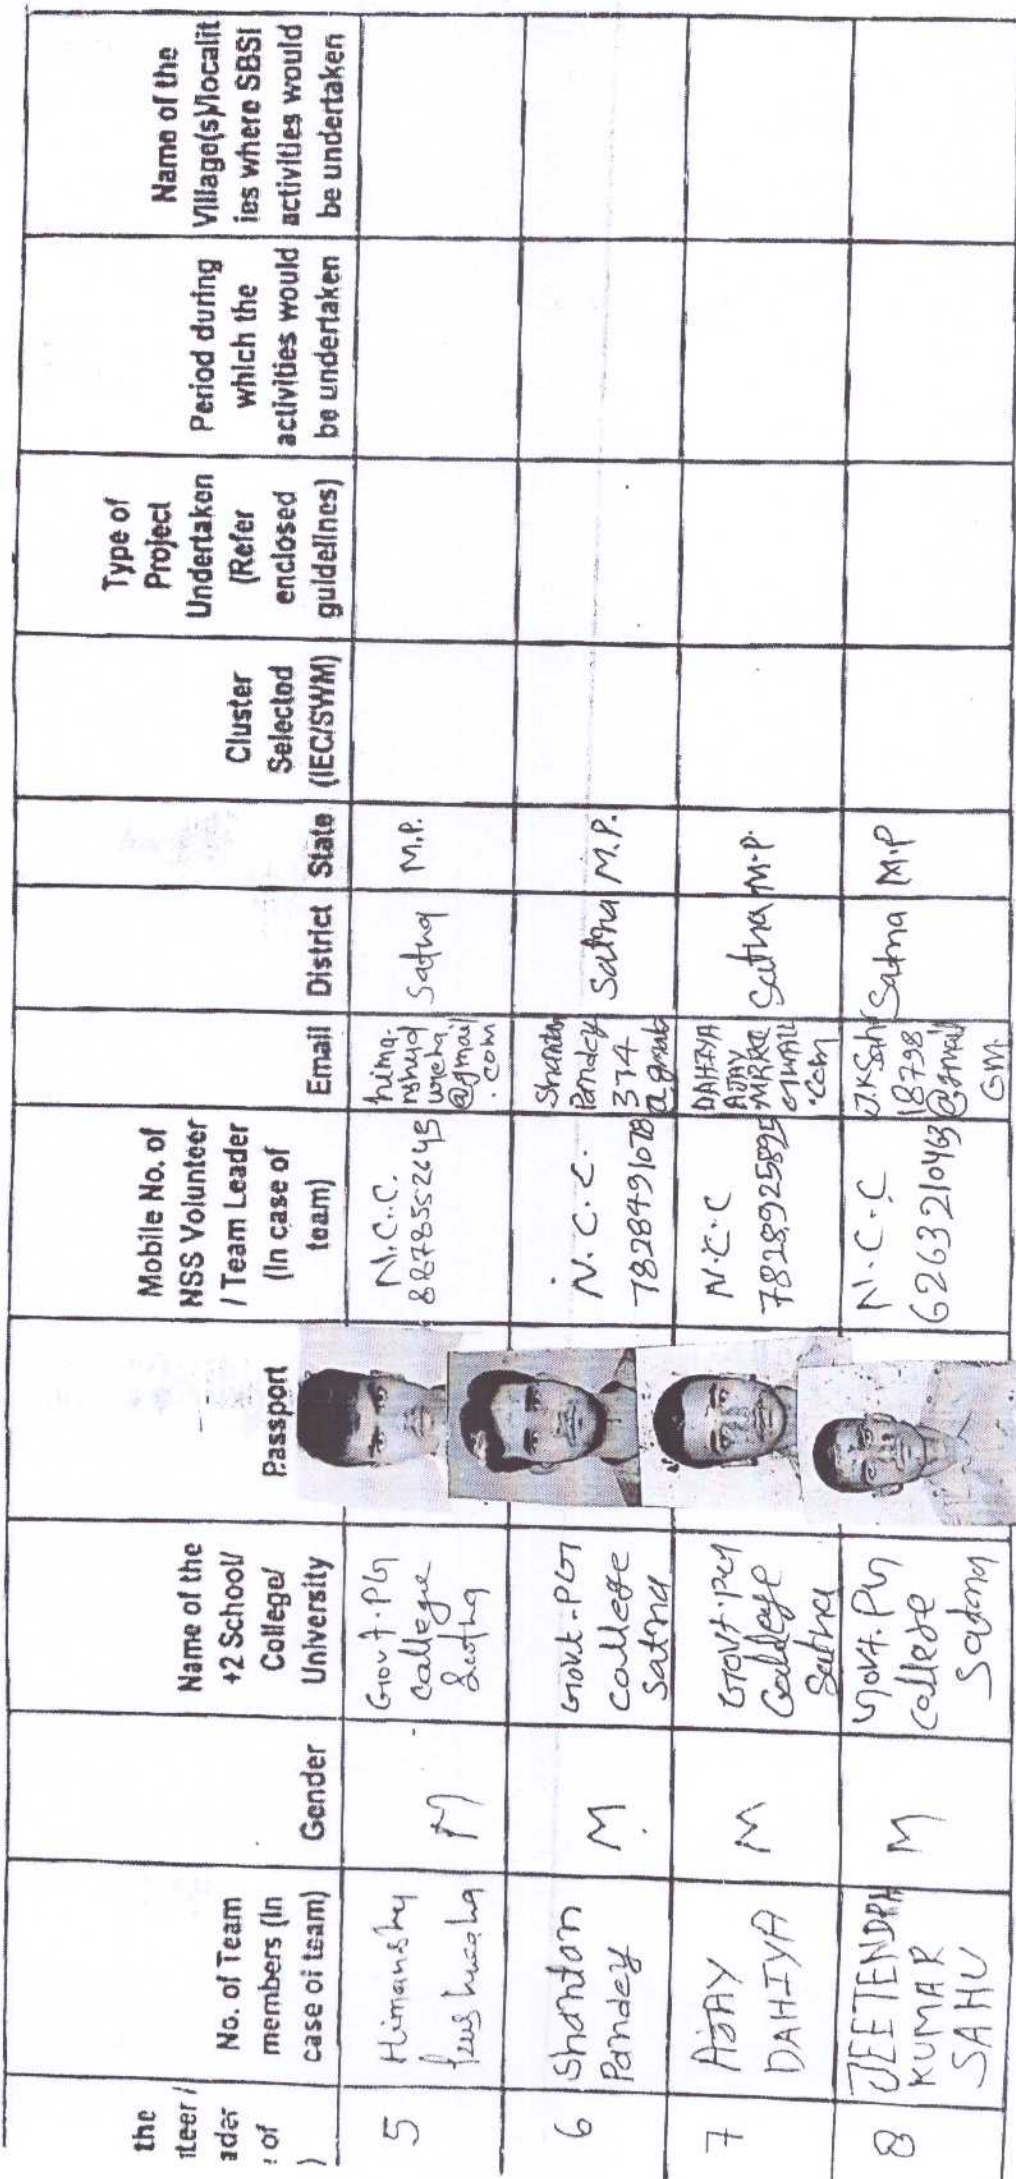 the
iteer /
ader
: of
)
No. of Team
members (In
case of team)
Gender
Name of the
+2 School/
College/
University
Passport
Mobile No. of
NSS Volunteer
/ Team Leader
(In case of
team)
Email
District
State
Cluster
Selected
(IEC/SWM)
Type of
Project
Undertaken
(Refer
enclosed
guidelines)
Period during
which the
activities would
be undertaken
Name of the
Village(s)/localit
ies where SBSI
activities would
be undertaken
5
Himanshu
M
Govt. PG
College
Satna
N.C.C.
@gmail
.com
Satna
M.P.
6
Shantan
Pandey
M
Govt. PG
College
Satna
N.C.C.
7828491078
Pandey
374
Satna
M.P.
7
AJAY
DAHIYA
M
Govt. PG
College
Satna
N.C.C
7828925895
DAHIYA
AJAY
.com
Satna
M.P.
8
JEETENDRA
KUMAR
SAHU
M
Govt. PG
College
Satna
N.C.C
6263210463
J.K Sahu
18798
@gmail
Satna
M.P